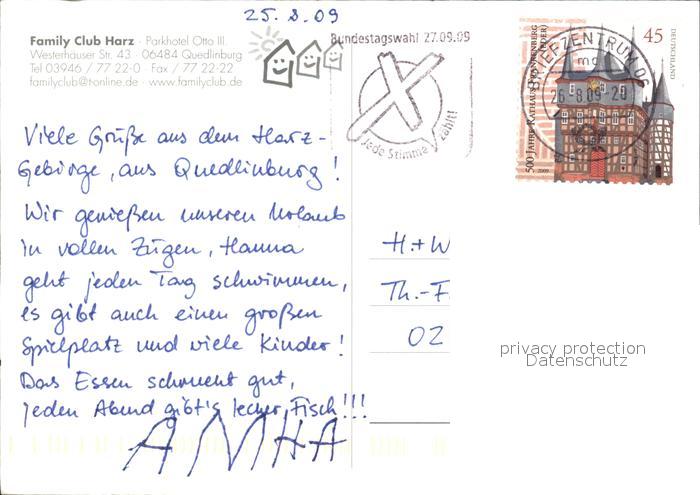 25.8.09
Family Club Harz · Parkhotel Otto III.
Westerhäuser Str. 43 · 06484 Quedlinburg
Tel 03946 / 77 22-0 · Fax / 77 22-22
familyclub@t-online.de · www.familyclub.de
Bundestagswahl 27.09.09
Jede Stimme zählt!
BRIEFZENTRUM 06
26.8.09-20
500 JAHRE RATHAUS FRANKENBERG (EDER)
2009
45
DEUTSCHLAND
Viele Grüße aus dem Harz-
Gebirge, aus Quedlinburg!
Wir genießen unseren Urlaub
in vollen Zügen, Hanna
geht jeden Tag schwimmen,
es gibt auch einen großen
Spielplatz und viele Kinder!
Das Essen schmeckt gut,
jeden Abend gibt's lecker Fisch!!!
H.+W
Th.-F
02
privacy protection
Datenschutz